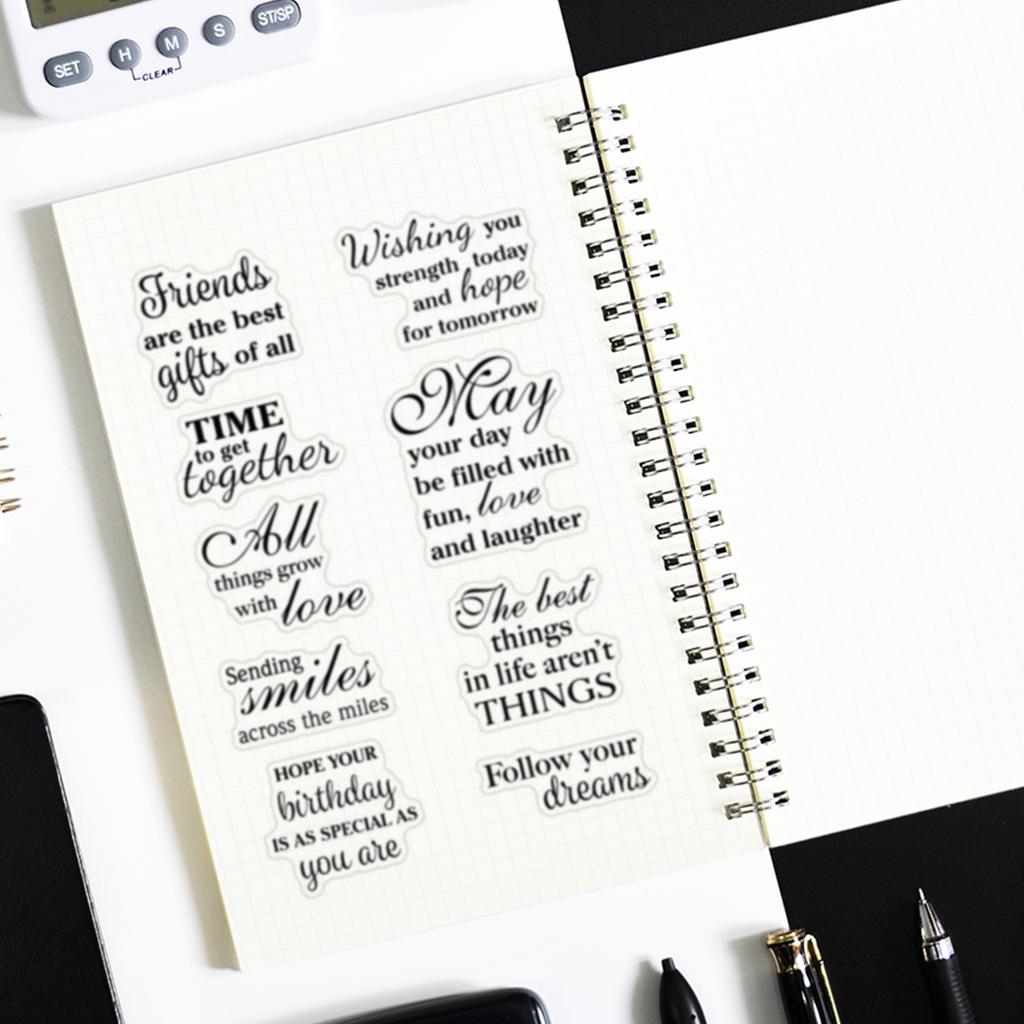 SET H M S ST/SP
CLEAR
Friends
are the best
gifts of all
TIME
to get
together
All
things grow
with love
Sending
smiles
across the miles
HOPE YOUR
birthday
IS AS SPECIAL AS
you are
Wishing you
strength today
and hope
for tomorrow
May
your day
be filled with
fun, love
and laughter
The best
things
in life aren't
THINGS
Follow your
dreams